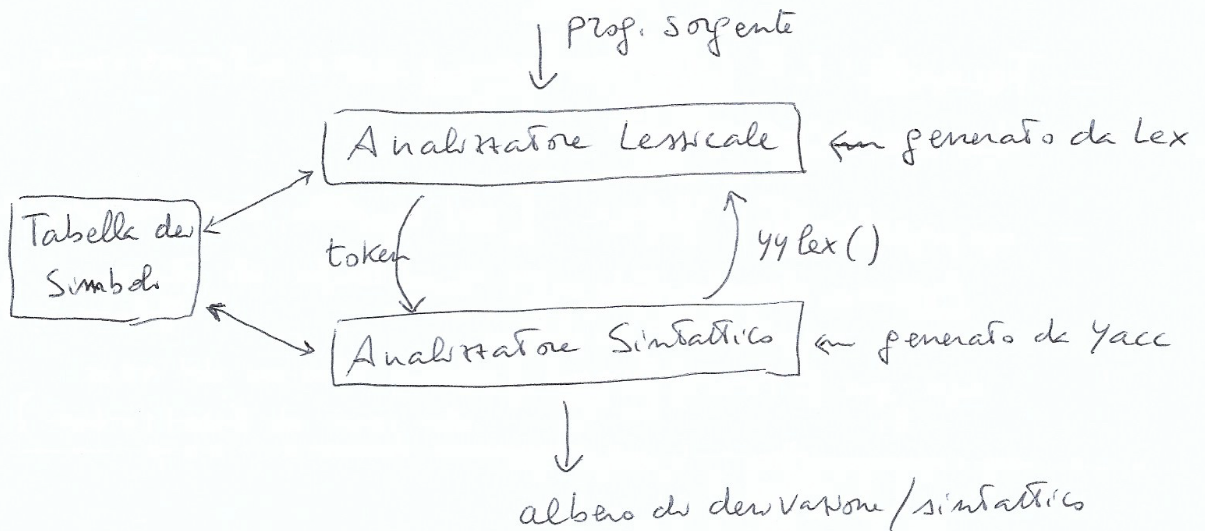 prog. sorgente
Analizzatore Lessicale
generato da Lex
Tabella dei
Simboli
token
yylex()
Analizzatore Sintattico
generato da Yacc
albero di derivazione/sintattico